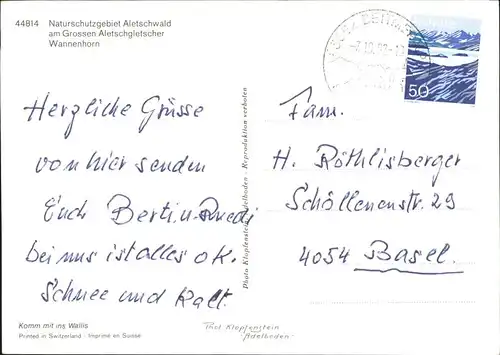 44814 Naturschutzgebiet Aletschwald
am Grossen Aletschgletscher
Wannenhorn
Herzliche Grüsse
von hier senden
Euch Bertin u. Ruedi
bei uns ist alles ok.
Schnee und kalt.
Komm mit ins Wallis
Printed in Switzerland - Imprimé en Suisse
Photo Klopfenstein, Adelboden - Reproduktion verboten
Phot Klopfenstein
Adelboden
50
Fam.
H. Röthlisberger
Schöllenenstr. 29
4054 Basel.